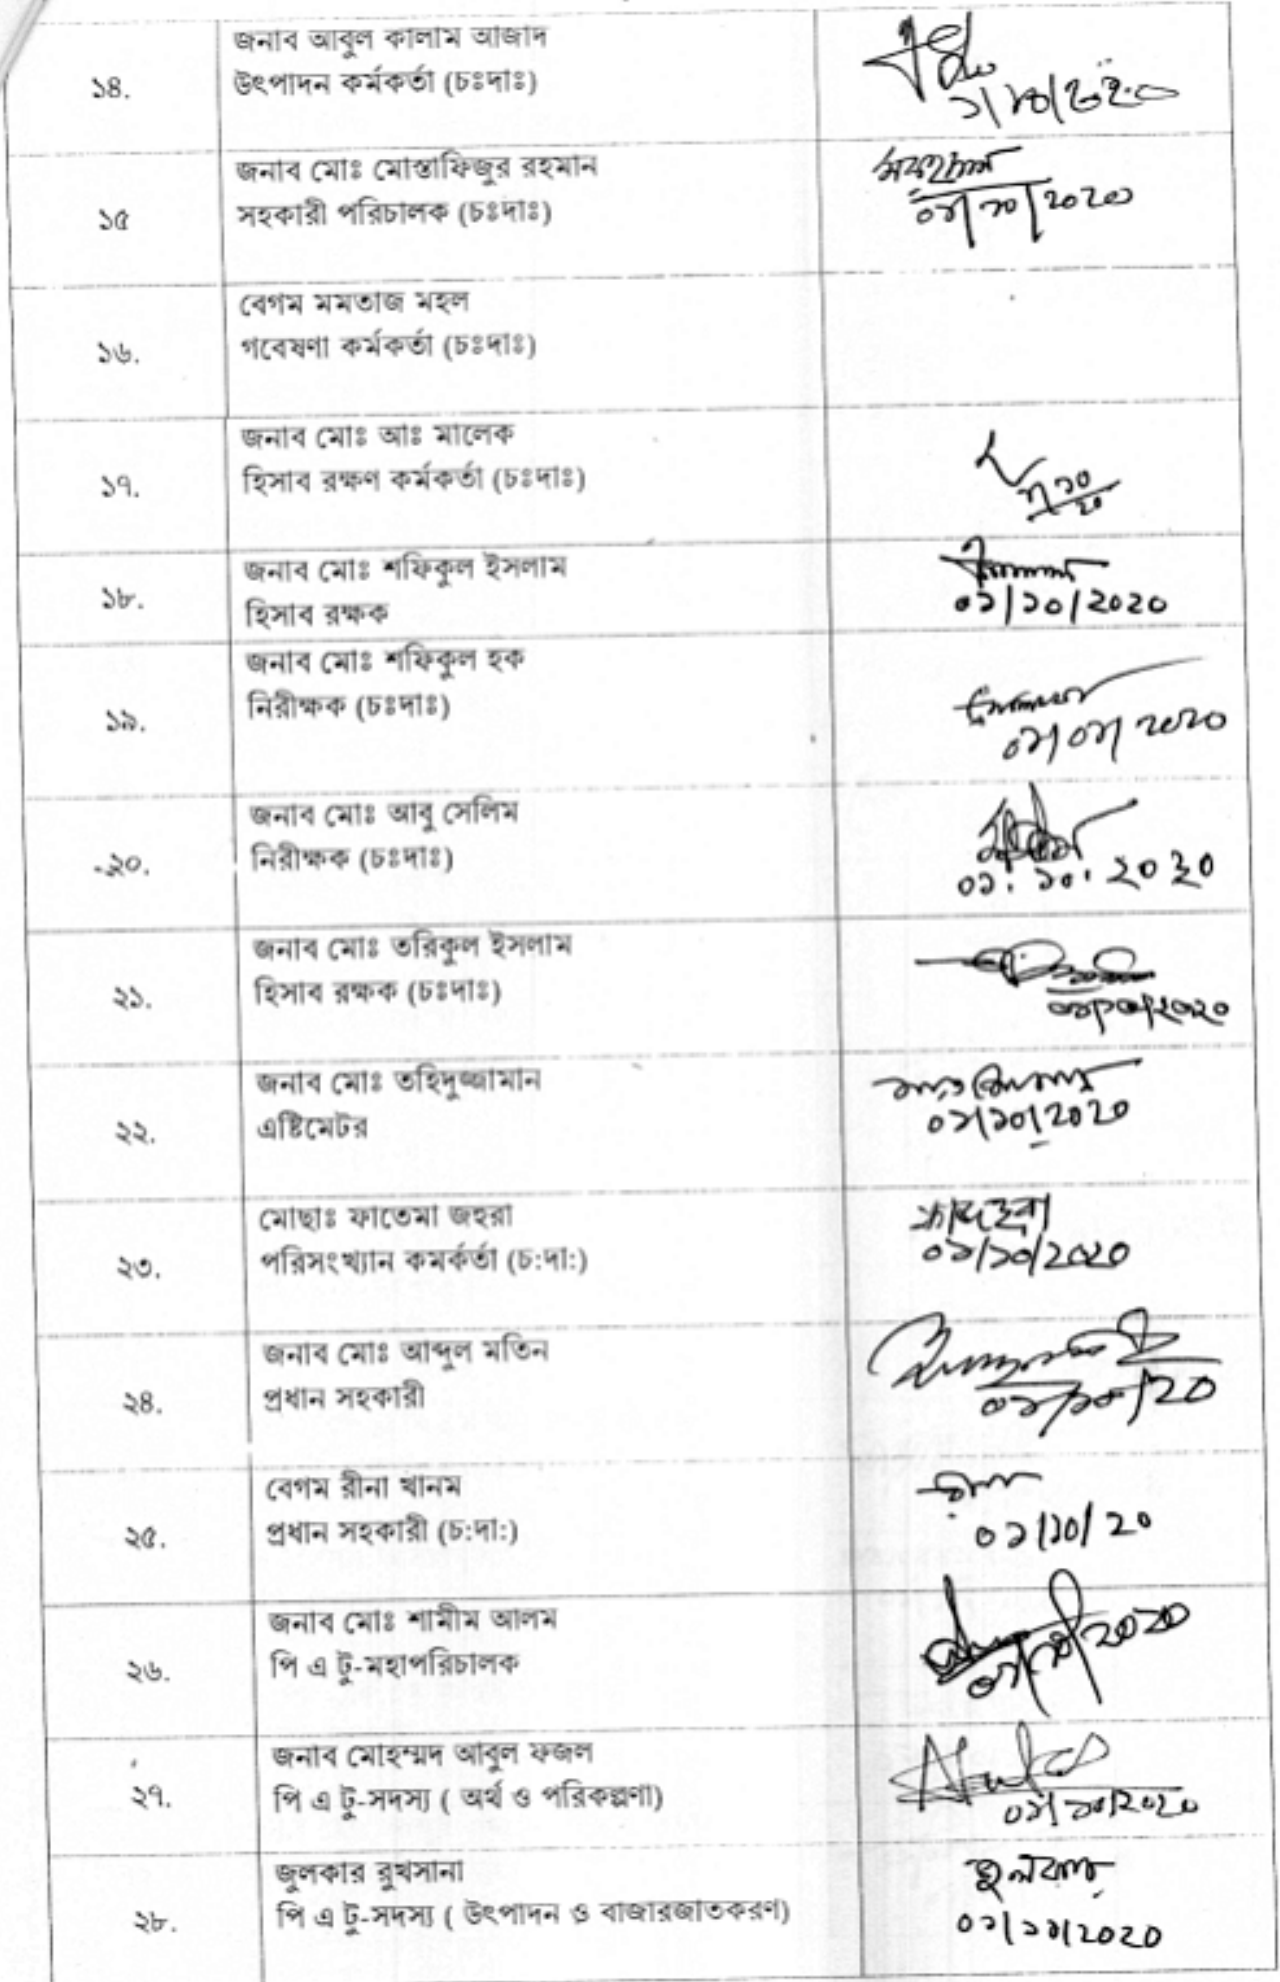 ১৪.
জনাব আবুল কালাম আজাদ
উৎপাদন কর্মকর্তা (চঃদাঃ)
১৫
জনাব মোঃ মোস্তাফিজুর রহমান
সহকারী পরিচালক (চঃদাঃ)
০১/১০/২০২০
১৬.
বেগম মমতাজ মহল
গবেষণা কর্মকর্তা (চঃদাঃ)
১৭.
জনাব মোঃ আঃ মালেক
হিসাব রক্ষণ কর্মকর্তা (চঃদাঃ)
১৮.
জনাব মোঃ শফিকুল ইসলাম
হিসাব রক্ষক
০১/১০/২০২০
১৯.
জনাব মোঃ শফিকুল হক
নিরীক্ষক (চঃদাঃ)
২০.
জনাব মোঃ আবু সেলিম
নিরীক্ষক (চঃদাঃ)
০১.১০.২০২০
২১.
জনাব মোঃ তরিকুল ইসলাম
হিসাব রক্ষক (চঃদাঃ)
২২.
জনাব মোঃ তহিদুজ্জামান
এষ্টিমেটর
০১/১০/২০২০
২৩.
মোছাঃ ফাতেমা জহুরা
পরিসংখ্যান কমর্কর্তা (চ:দা:)
০১/১০/২০২০
২৪.
জনাব মোঃ আব্দুল মতিন
প্রধান সহকারী
০১/১০/২০
২৫.
বেগম রীনা খানম
প্রধান সহকারী (চ:দা:)
রীনা
০১/১০/২০
২৬.
জনাব মোঃ শামীম আলম
পি এ টু-মহাপরিচালক
০১/১০/২০২০
২৭.
জনাব মোহম্মদ আবুল ফজল
পি এ টু-সদস্য ( অর্থ ও পরিকল্পণা)
০১/১০/২০২০
২৮.
জুলকার রুখসানা
পি এ টু-সদস্য ( উৎপাদন ও বাজারজাতকরণ)